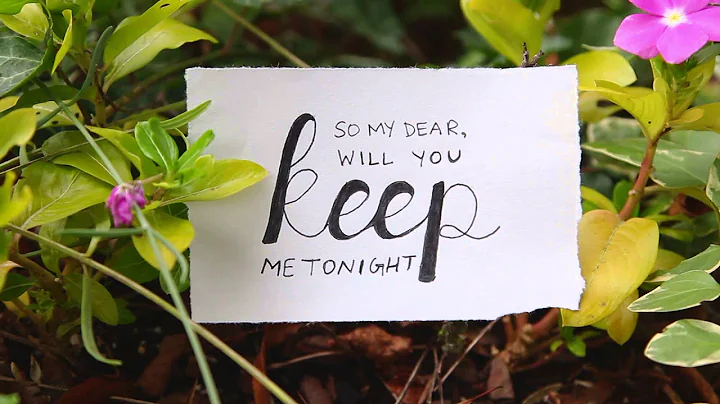 SO MY DEAR,
WILL YOU
keep
ME TONIGHT